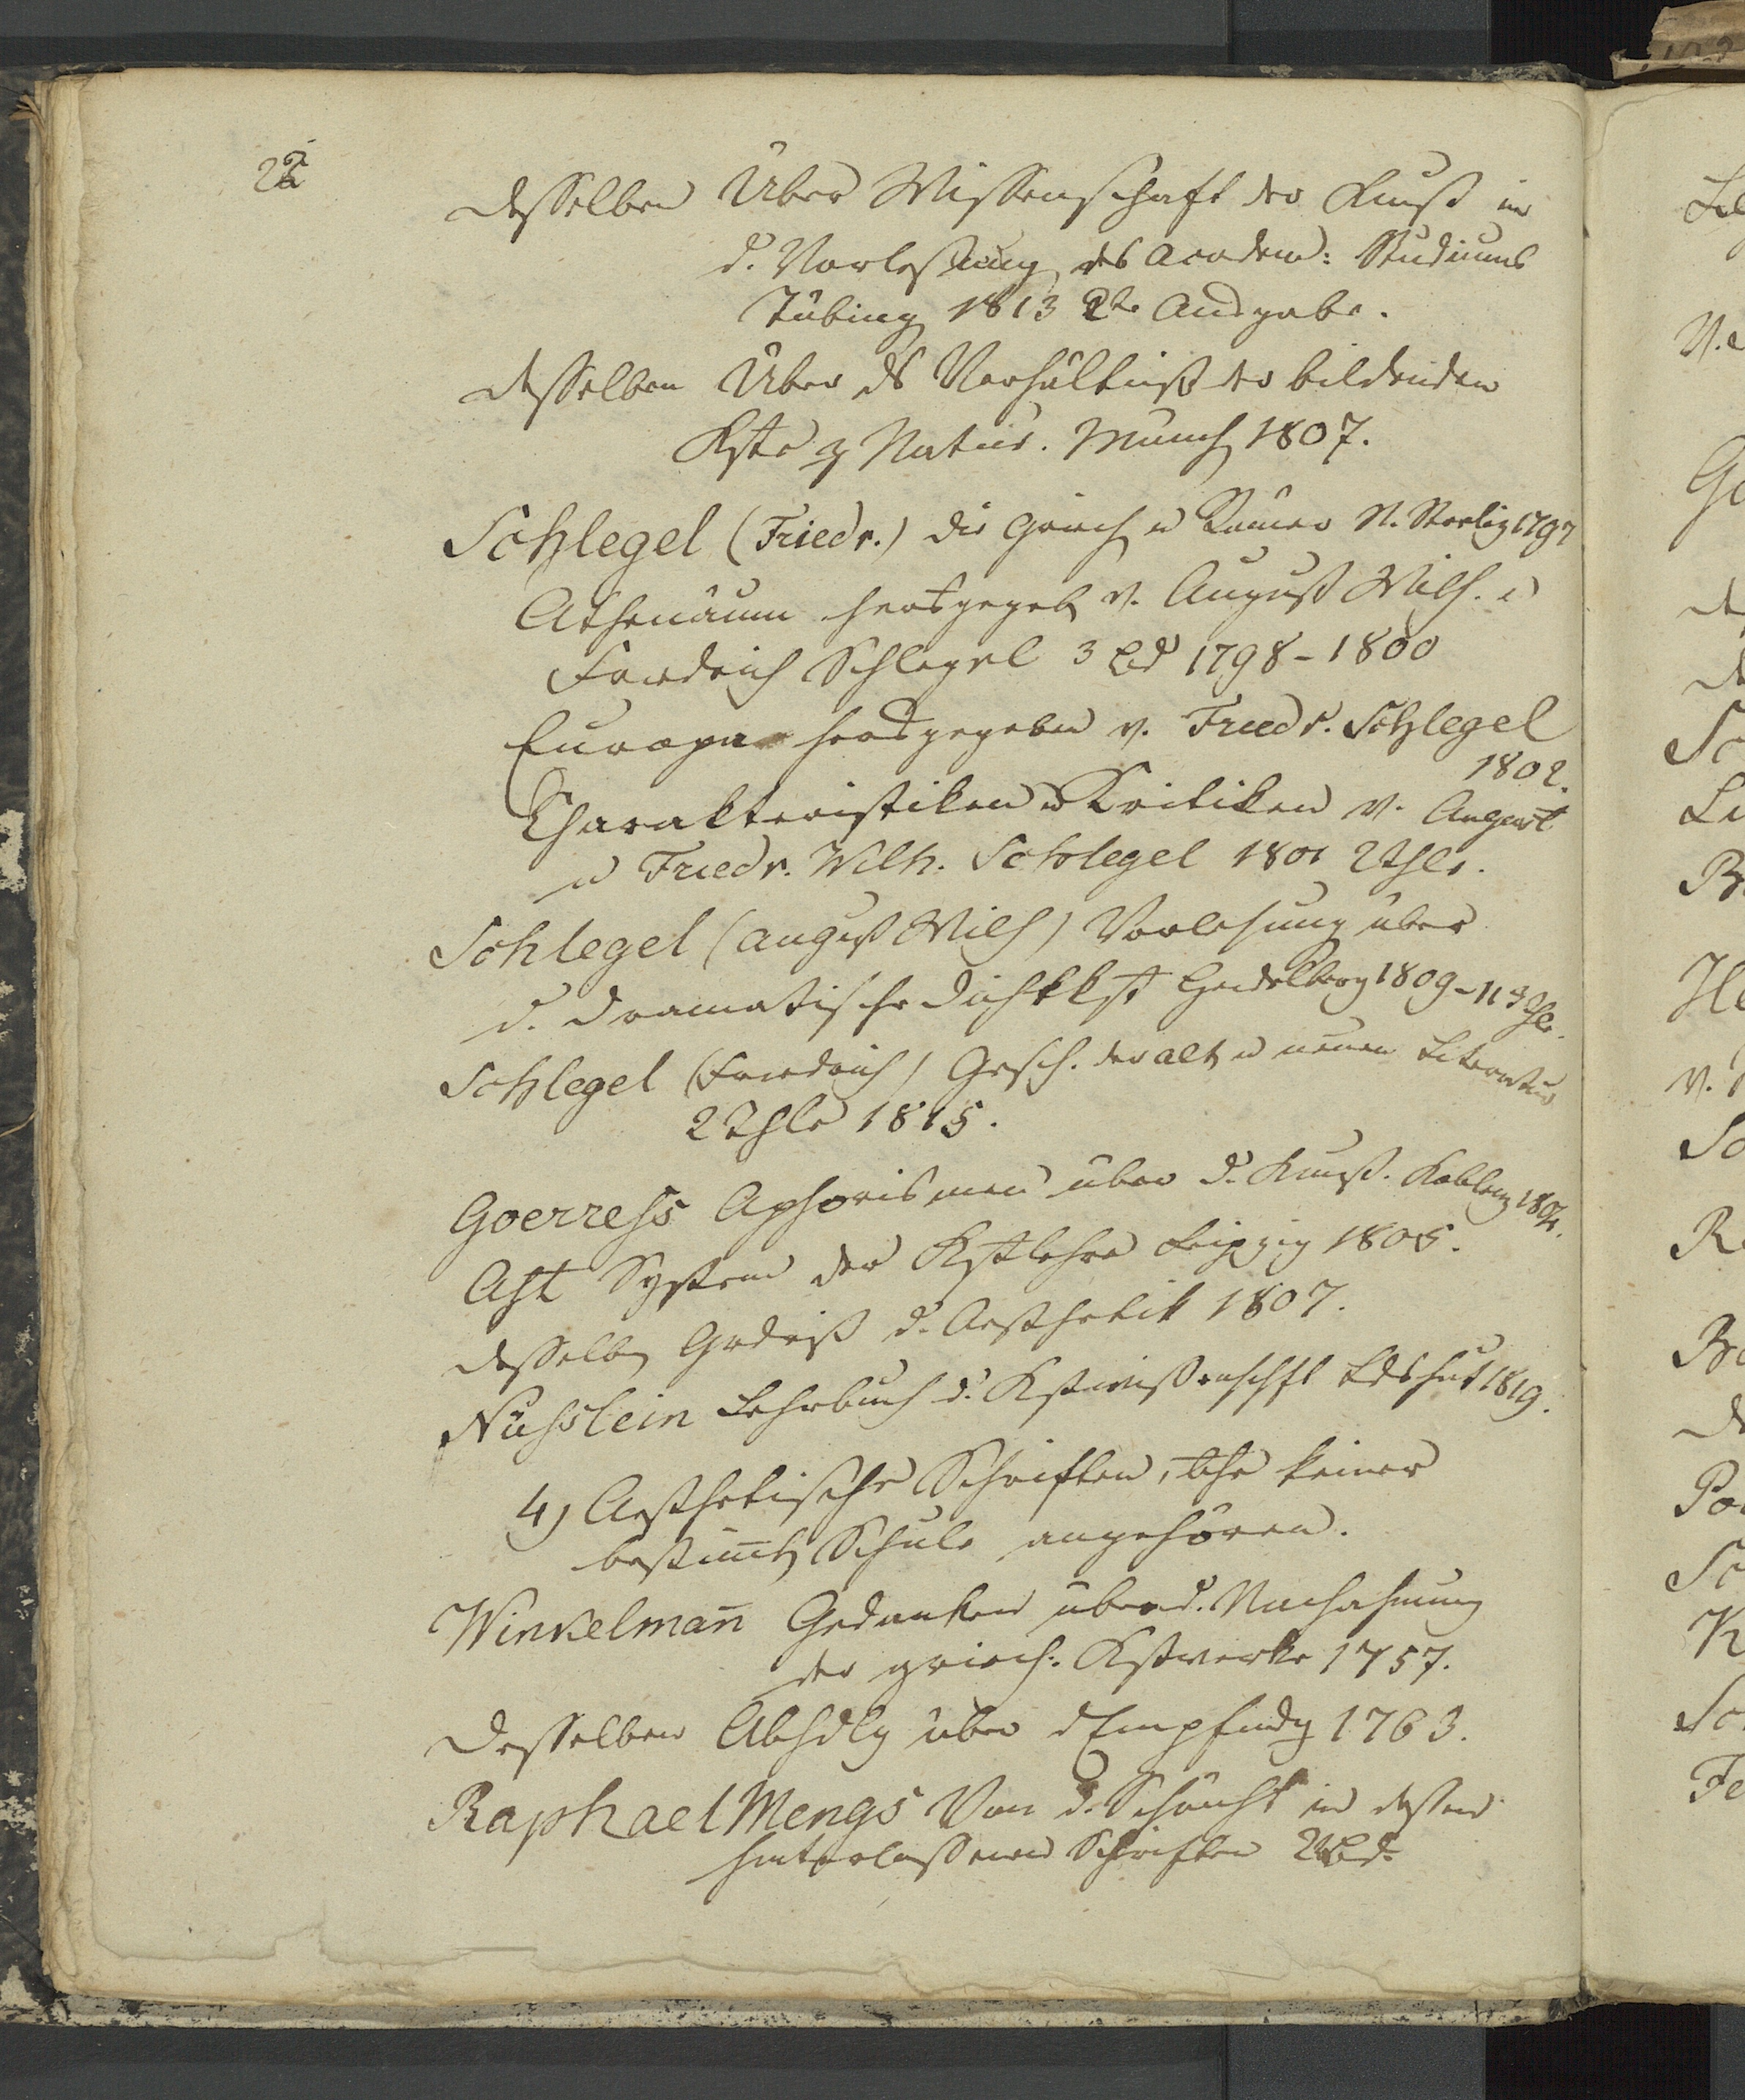 22
desselben Über Wissenschaft der Kunst in
d. Vorlesung des Academ: Studiums
Tübing 1813 2te Ausgabe.
desselben Über ds Verhältniß der bildenden
Kste z Natur. Münch 1807.
Schlegel (Friedr.) die Griech u Römer N. Sterliz 1797
Athenäum herausgegeb v. August Wilh. u
Friedrich Schlegel 3 Bd 1798-1800
Europa herausgegeben v. Friedr. Schlegel
1802.
Charakteristiken u Kritiken v. August
u Friedr. Wilh. Schlegel 1801 2 Thle.
Schlegel (August Wilh) Vorlesung über
d. dramatische Dichtkst Heidelberg 1809-11 3 Thle.
Schlegel (Friedrich) Gesch. der alt u neuen Literatur
2 Thle 1815.
Goerress Aphorismen über d. Kunst. Koblenz 1804.
Ast System der Kstlehre Leipzig 1805.
desselb Grdriß d. Aesthetik 1807.
Nüsslein Lehrbuch d. Kstwißenschft Ldshut 1819.
4) Aesthetische Schriften, wlche keiner
bestimt Schule angehören.
Winkelmañ Gedanken über d. Nachahmung
der griech: Kstwerke 1757.
Desselben Abhdlg über d Empfindg 1763.
Raphael Mengs Von d. Schönht in dessen
hinterlassenen Schriften 2 Bd.